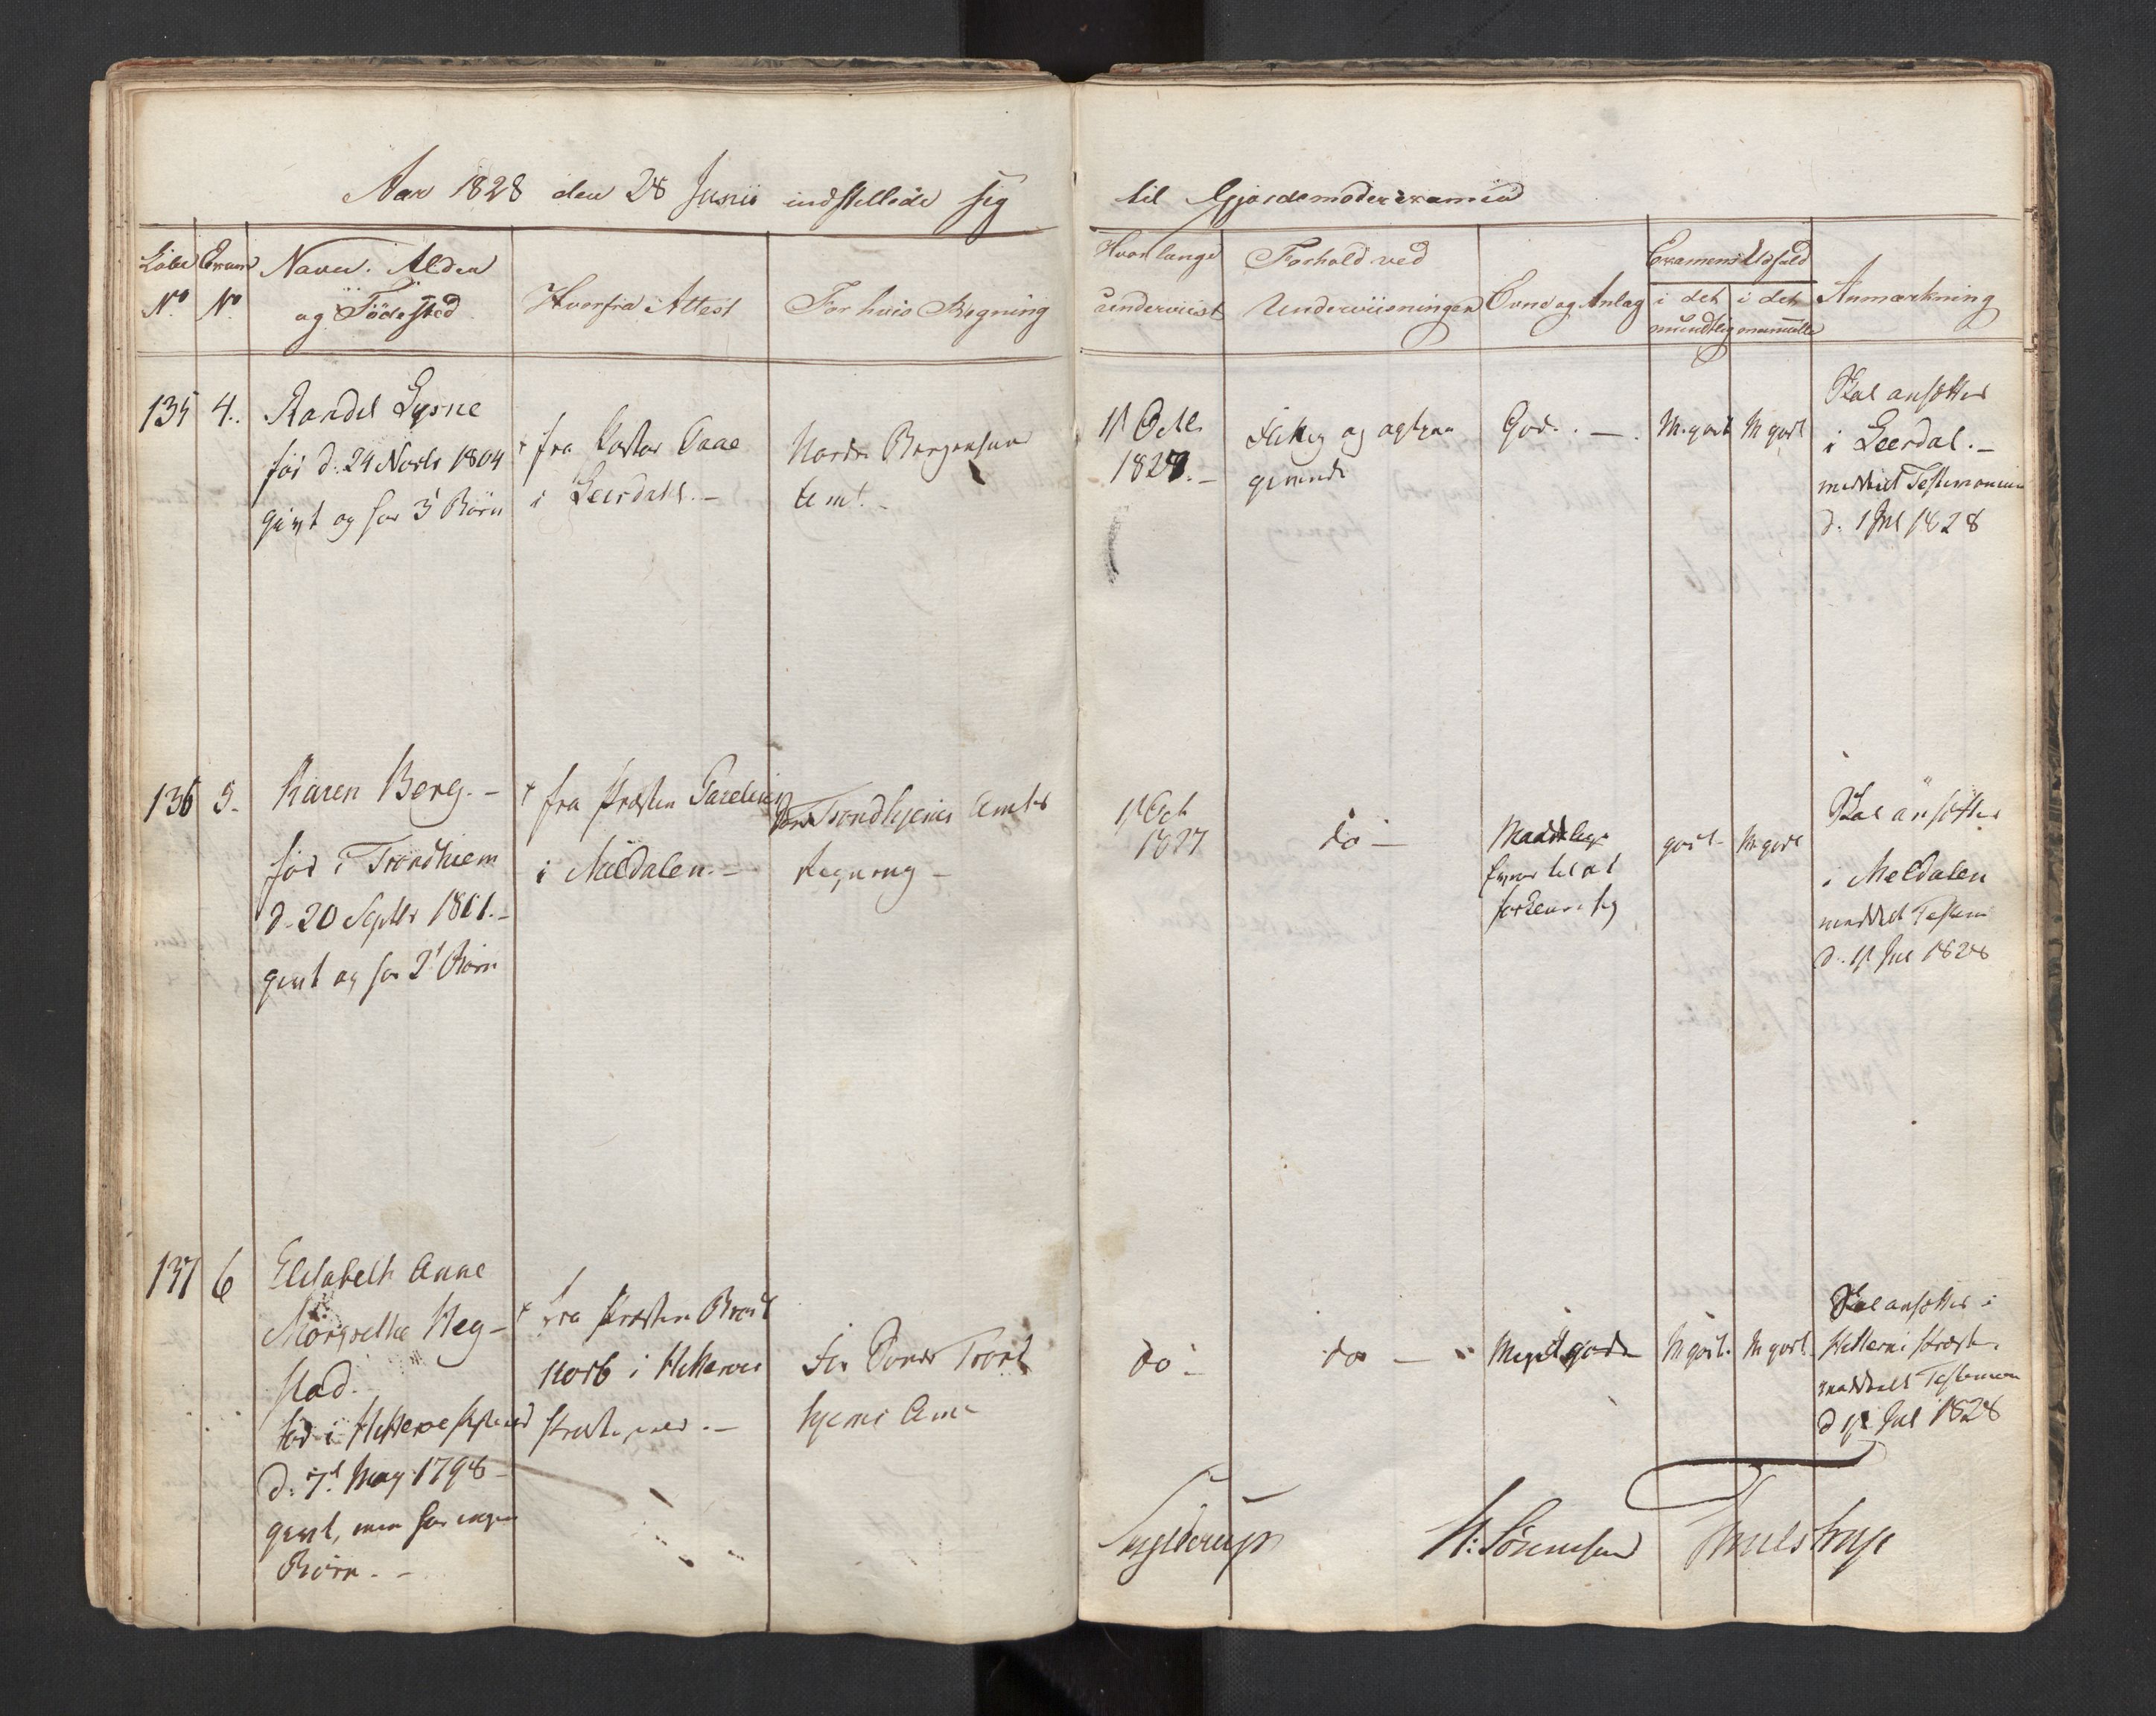 Aar 1828 den 28 Junii indstillede sig til Gjordemoderexamen
Løbe No
Exam No
Navn, Alder
og Födested
Hvorfra Attest
For hvis Regning
Hvorlænge
underviist
Forhold ved
Underviisningen
Evne og Anlæg
Examens Udfald
i det
mundtlig
i det
manuelle
Anmærkning
135
4.
Randel Lysne
fød d. 24 Novbr 1804
givt og har 3 Börn
fra Pastor Daae
i Leerdahl. -
Nordre Bergenhuus
Amt. -
1st Octbr
1827. -
flittig og agtpaa
givende
God. -
M. godt
M godt
Skal ansættes
i Leerdal. -
meddeelt Testimonium
d. 1 Jul 1828
136
5.
Karen Berg. -
fød i Trondhiem
d. 20 Septbr 1801. -
givt og har 2 Børn
fra Præsten
i Meldalen. -
Trondhjems Amts
Regning -
1st Oct
1827
do -
Maadelige
Evner til at
forklare sig
godt -
M godt
Skal ansættes
i Meldalen
meddeelt Testim
d. 1st Jul 1828
137
6
Elisabeth Anne
Margrethe Heg-
stad.
fød i Hitteröe Præstegield
d. 7d May 1798 -
givt, men har ingen
Børn. -
fra Præsten
i Hitterøe
Præstegield. -
for Søndr Trond
hjems Amt
do -
do -
Meget gode
M godt.
M godt.
Skal ansættes i
Hitterøe Præsteg
meddeelt Testimon
d 1st Jul 1828
N: Sörenssen
Thulstrup